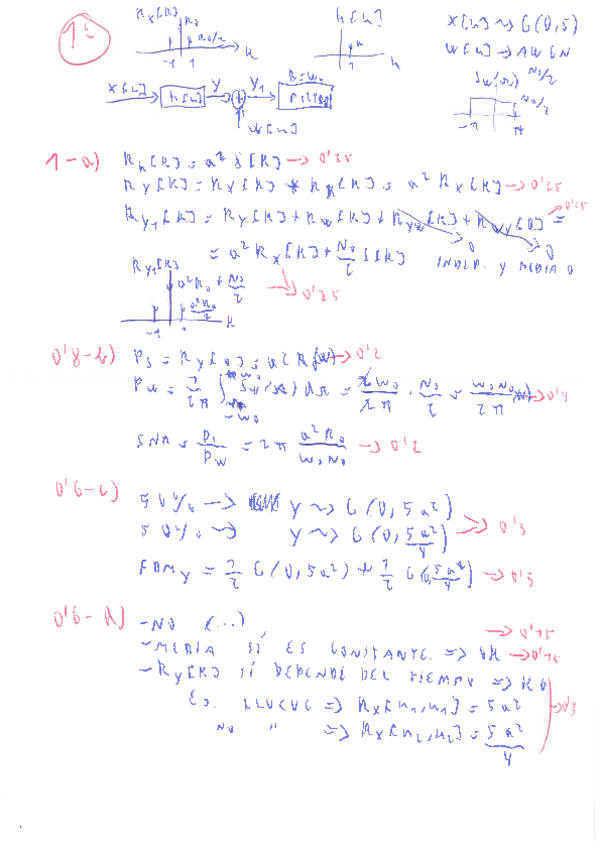 1º
R_X[K]
R_0
R_0/2
K
-1 1
h[n]?
a
n
X[n] ~> G(0,5)
W[n] -> AWGN
S_W(Ω) N_0/2
N_0/2
-π π
X[n] h[n] Y Y_1 B=W_0
FILTRO
W[n]
1-a) R_h[K] = a² δ[K] -> 0'25
R_Y[K] = R_X[K] * R_h[K] = a² R_X[K] -> 0'25
R_Y1[K] = R_Y[K] + R_W[K] + R_YW[K] + R_WY[K] = 0'25
0 0
= a² R_X[K] + N_0/2 δ[K] INDEP. Y MEDIA 0
R_Y1[K]
a²R_0 + N_0/2
a²R_0/2
-> 0'25
-1 1 K
0'8-b) P_S = R_Y[0] = a²R_0 -> 0'2
P_W = 1/2π ∫ S_W(Ω) dΩ = 2W_0/2π · N_0/2 = W_0N_0/2π -> 0'4
-W_0
SNR = P_S/P_W = 2π a²R_0/W_0N_0 -> 0'2
0'6-c) 50% -> Y ~> G(0,5a²)
50% ~> Y ~> G(0,5a²/4) >> 0'3
FDM_Y = 1/2 G(0,5a²) + 1/2 G(0,5a²/4) -> 0'3
0'6-d) -NO (...) -> 0'15
-MEDIA SÍ ES CONSTANTE. => OK -> 0'15
-R_Y[K] SÍ DEPENDE DEL TIEMPO => KO
EJ. LLUEVE => R_X[n_1,n_1] = 5a² -> 0'3
NO " => R_X[n_2,n_2] = 5a²/4